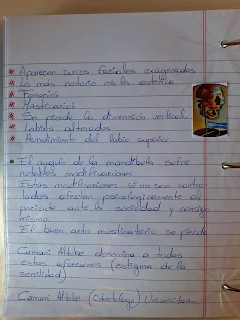 * Aparecen surcos faciales exagerados
* Lo mas notorio es la estetica
* Fonacion
* Masticacion
* Se pierde la dimension vertical.
* Labios alterados
* Hundimiento del labio superior
• El angulo de la mandibula sufre
notables modificaciones
Estas modificaciones si no son contro
ladas afectan psicologicamente al
paciente ante la sociedad y consigo
mismo.
El buen acto masticatorio se pierde
Camani Altube denomina a todas
estas afecciones (estigma de la
senilidad)
Camani Altube (Odontologo) Universitario.